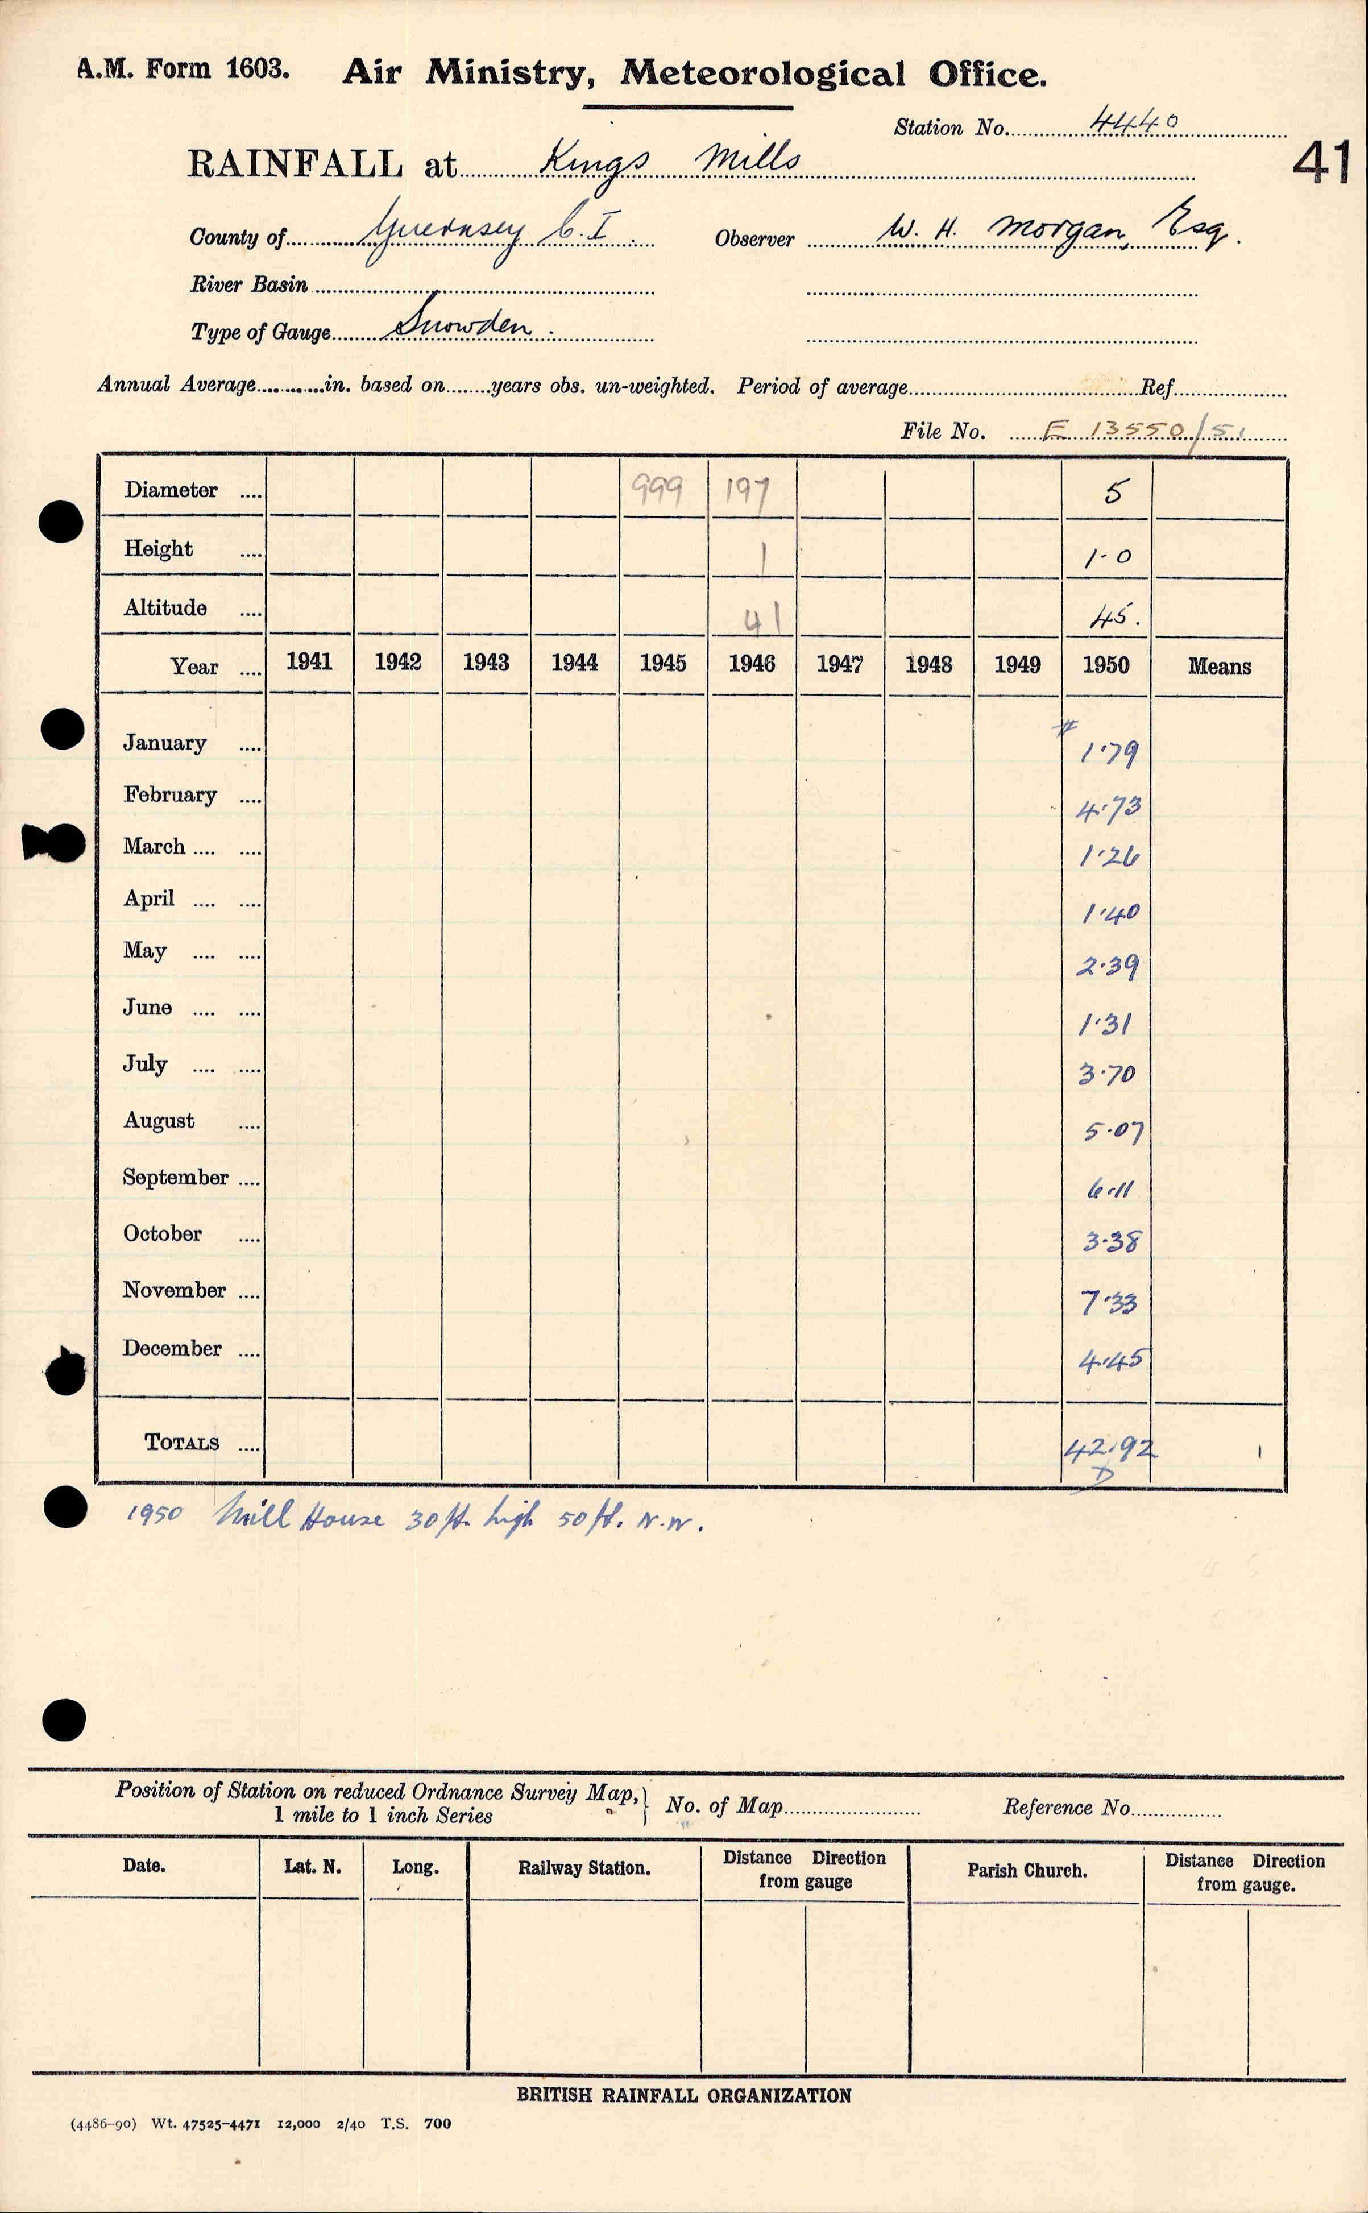 A.M. Form 1603. Air Ministry, Meteorological Office.
Station No. 4440
41
RAINFALL at Kings Mills
County of Guernsey C.I. Observer W. H. Morgan, Esq.
River Basin
Type of Gauge Snowden.
Annual Average in. based on years obs. un-weighted. Period of average Ref.
File No. E 13550/51
Diameter 999 197 5
Height 1 1·0
Altitude 41 45.
Year 1941 1942 1943 1944 1945 1946 1947 1948 1949 1950 Means
#
January 1·79
February 4·73
March 1·26
April 1·40
May 2·39
June 1·31
July 3·70
August 5·07
September 6·11
October 3·38
November 7·33
December 4·45
TOTALS 42·92
D
1950 Mill House 30 ft. high 50 ft. N.W.
Position of Station on reduced Ordnance Survey Map,
1 mile to 1 inch Series } No. of Map Reference No.
Date. Lat. N. Long. Railway Station. Distance Direction from gauge Parish Church. Distance Direction from gauge.
BRITISH RAINFALL ORGANIZATION
(4486-90) Wt. 47525-4471 12,000 2/40 T.S. 700